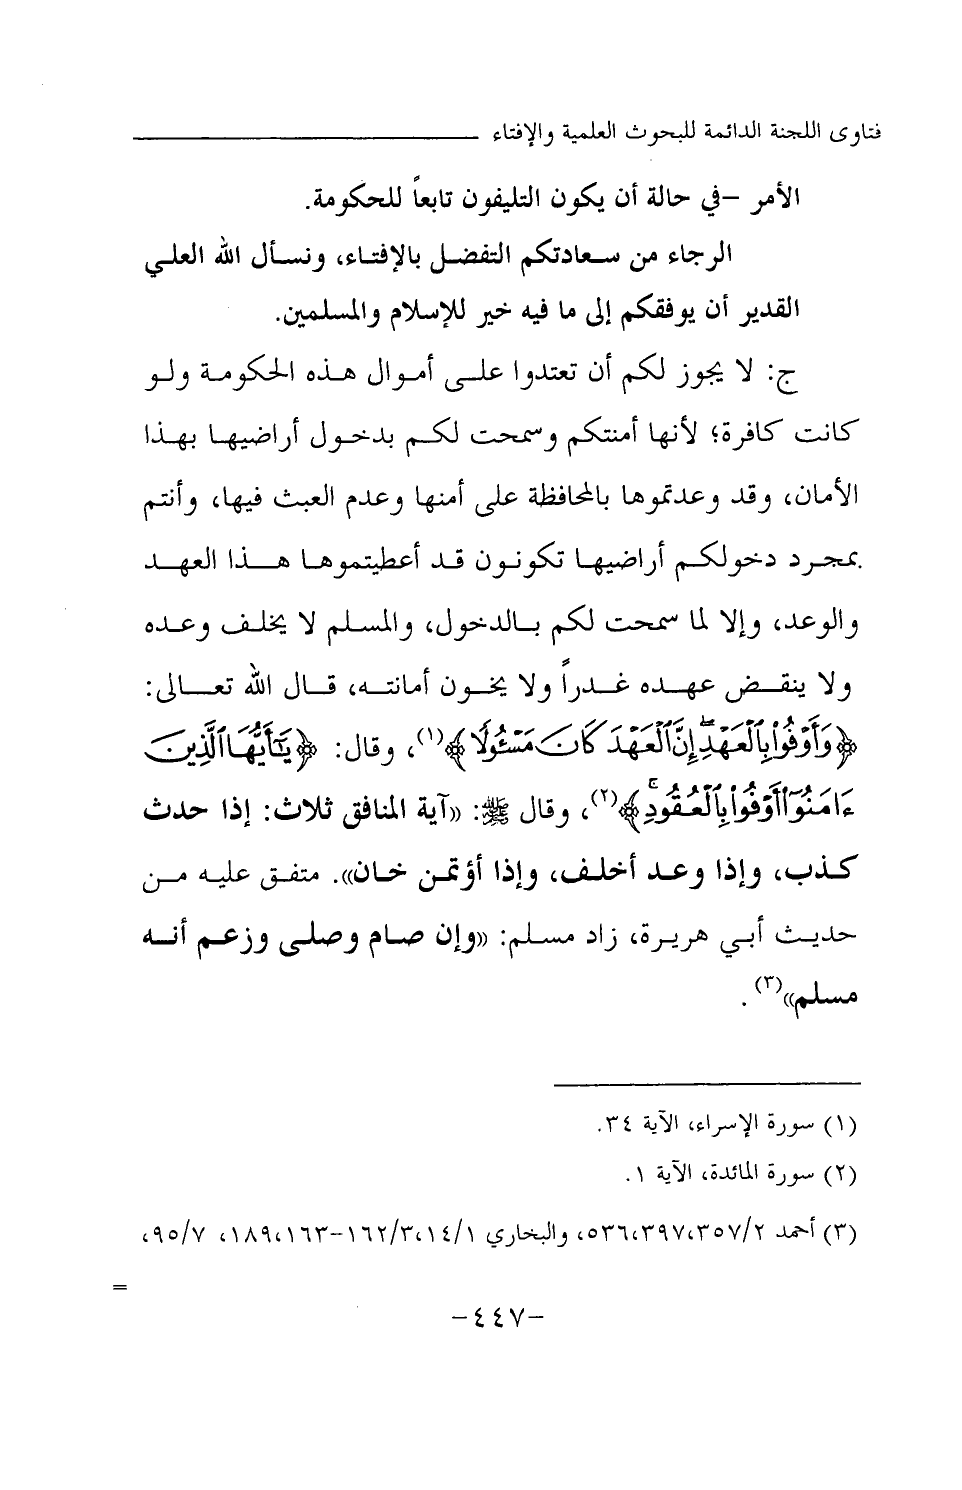 فتاوى اللجنة الدائمة للبحوث العلمية والإفتاء
الأمر –في حالة أن يكون التليفون تابعاً للحكومة.
الرجاء من سعادتكم التفضل بالإفتاء، ونسأل الله العلي
القدير أن يوفقكم إلى ما فيه خير للإسلام والمسلمين.
ج: لا يجوز لكم أن تعتدوا على أموال هذه الحكومة ولو
كانت كافرة؛ لأنها أمنتكم وسمحت لكم بدخول أراضيها بهذا
الأمان، وقد وعدتموها بالمحافظة على أمنها وعدم العبث فيها، وأنتم
بمجرد دخولكم أراضيها تكونون قد أعطيتموها هذا العهد
والوعد، وإلا لما سمحت لكم بالدخول، والمسلم لا يخلف وعده
ولا ينقض عهده غدراً ولا يخون أمانته، قال الله تعالى:
﴿وَأَوْفُوا۟ بِٱلْعَهْدِ ۖ إِنَّ ٱلْعَهْدَ كَانَ مَسْـُٔولًا﴾(١)، وقال: ﴿يَـٰٓأَيُّهَا ٱلَّذِينَ
ءَامَنُوٓا۟ أَوْفُوا۟ بِٱلْعُقُودِ ۚ﴾(٢)، وقال ﷺ: «آية المنافق ثلاث: إذا حدث
كذب، وإذا وعد أخلف، وإذا أؤتمن خان». متفق عليه من
حديث أبي هريرة، زاد مسلم: «وإن صام وصلى وزعم أنه
مسلم»(٣).
(١) سورة الإسراء، الآية ٣٤.
(٢) سورة المائدة، الآية ١.
(٣) أحمد ٢/٣٥٧،٣٩٧،٥٣٦، والبخاري ١/١٤،٣/١٦٢-١٦٣،١٨٩، ٧/٩٥،
=
-٤٤٧-